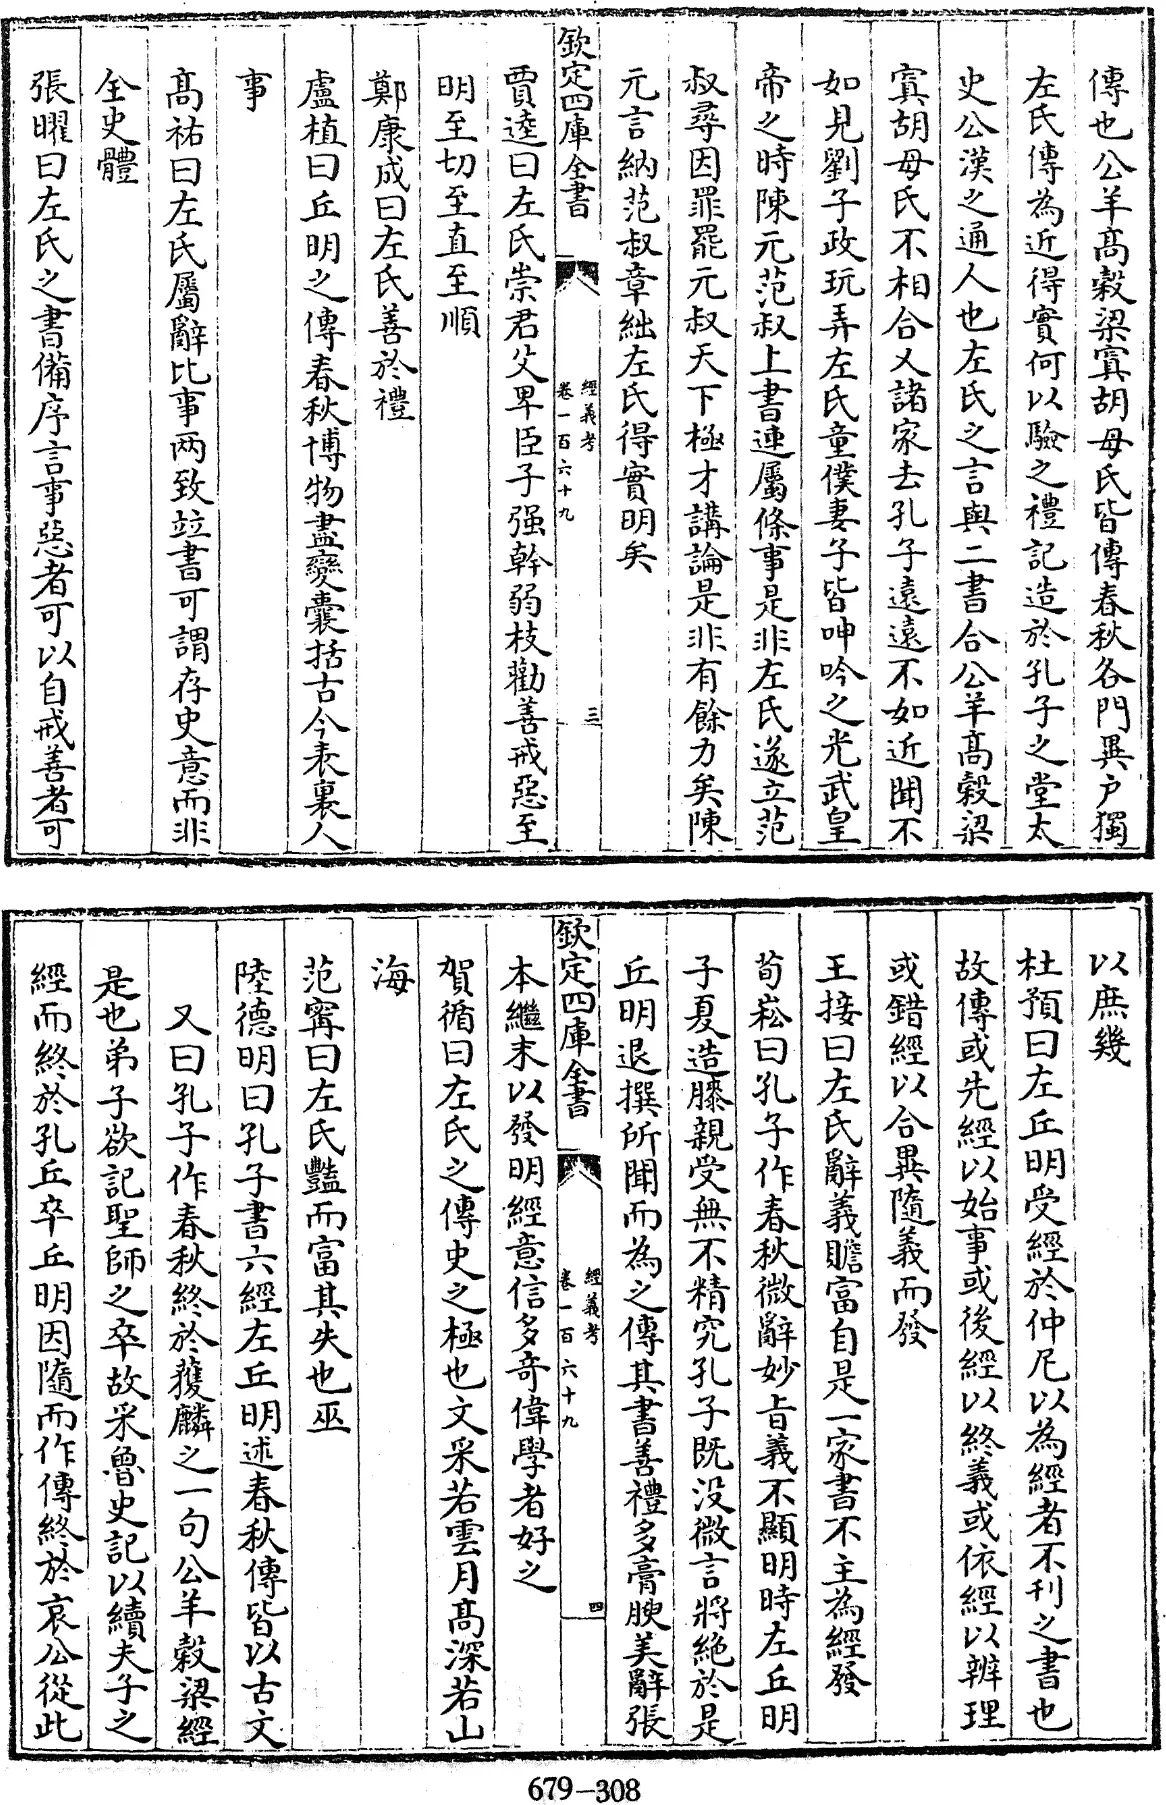 傳也公羊髙糓梁寘胡母氏皆傳春秋各門異户獨
左氏傳為近得實何以驗之禮記造於孔子之堂太
史公漢之通人也左氏之言與二書合公羊髙糓梁
寘胡母氏不相合又諸家去孔子遠遠不如近聞不
如見劉子政玩弄左氏童僕妻子皆呻吟之光武皇
帝之時陳元范叔上書連屬條事是非左氏遂立范
叔尋因罪罷元叔天下極才講論是非有餘力矣陳
元言納范叔章絀左氏得實明矣
欽定四庫全書
經義考
卷一百六十九
三
賈逵曰左氏崇君父卑臣子强幹弱枝勸善戒惡至
明至切至直至順
鄭康成曰左氏善於禮
盧植曰丘明之傳春秋博物盡變囊括古今表裏人
事
髙祐曰左氏屬辭比事兩致竝書可謂存史意而非
全史體
張曜曰左氏之書備序言事惡者可以自戒善者可
以庶幾
杜預曰左丘明受經於仲尼以為經者不刊之書也
故傳或先經以始事或後經以終義或依經以辨理
或錯經以合異隨義而發
王接曰左氏辭義贍富自是一家書不主為經發
荀崧曰孔子作春秋微辭妙旨義不顯明時左丘明
子夏造膝親受無不精究孔子既沒微言將絶於是
丘明退撰所聞而為之傳其書善禮多膏腴美辭張
欽定四庫全書
經義考
卷一百六十九
四
本繼末以發明經意信多奇偉學者好之
賀循曰左氏之傳史之極也文采若雲月髙深若山
海
范寗曰左氏豔而富其失也巫
陸德明曰孔子書六經左丘明述春秋傳皆以古文
又曰孔子作春秋終於獲麟之一句公羊糓梁經
是也弟子欲記聖師之卒故采魯史記以續夫子之
經而終於孔丘卒丘明因隨而作傳終於哀公從此
679-308